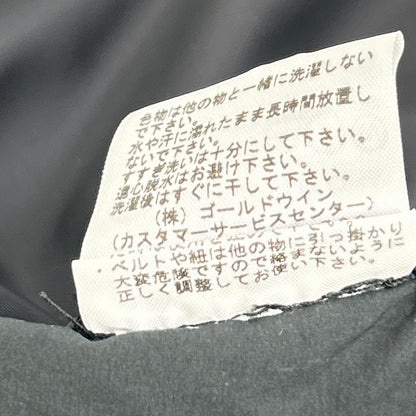 色物は他の物と一緒に洗濯しない
で下さい。
水や汗に濡れたまま長時間放置し
ないで下さい。
すすぎ洗いは十分にして下さい。
遠心脱水はお避け下さい。
洗濯後はすぐに干して下さい。
(株) ゴールドウイン
(カスタマーサービスセンター)
ベルトや紐は他の物に引っ掛かり
大変危険ですので絡まないように
正しく調整してお使い下さい。